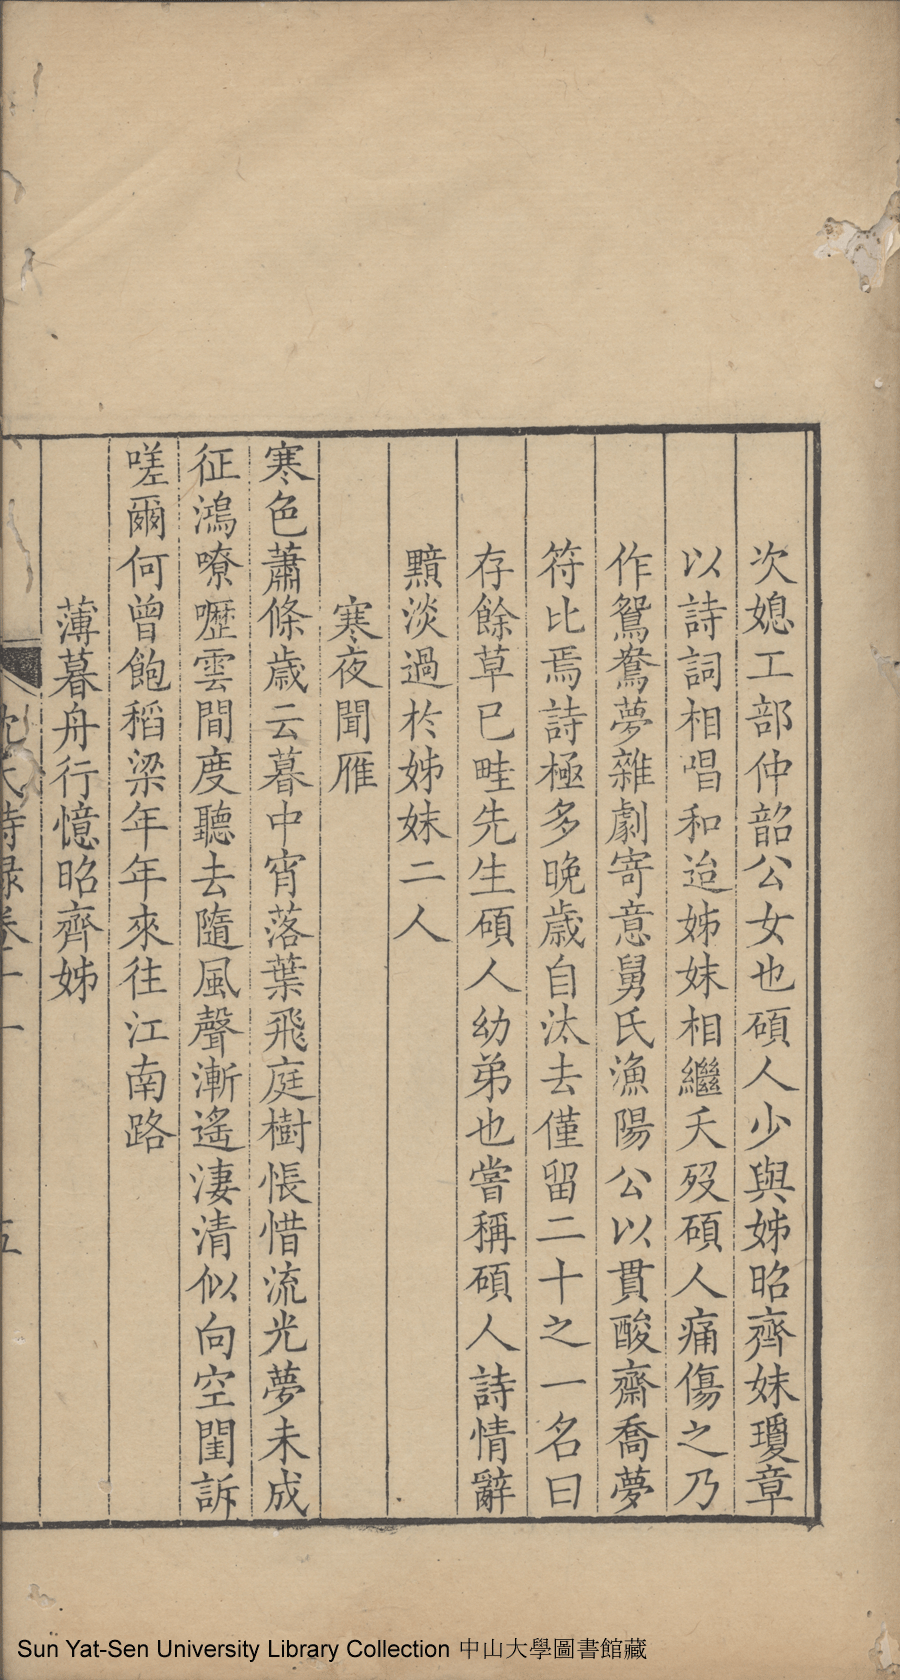 次媳工部仲韶公女也碩人少與姊昭齊妹瓊章
以詩詞相唱和迨姊妹相繼夭歿碩人痛傷之乃
作鴛鴦夢雜劇寄意舅氏漁陽公以貫酸齋喬夢
符比焉詩極多晚歲自汰去僅留二十之一名曰
存餘草已畦先生碩人幼弟也嘗稱碩人詩情辭
黯淡過於姊妹二人
寒夜聞雁
寒色蕭條歲云暮中宵落葉飛庭樹悵惜流光夢未成
征鴻嘹嚦雲間度聽去隨風聲漸遙淒清似向空閨訴
嗟爾何曾飽稻梁年年來往江南路
薄暮舟行憶昭齊姊
沈氏詩錄卷十一
五
Sun Yat-Sen University Library Collection 中山大學圖書館藏